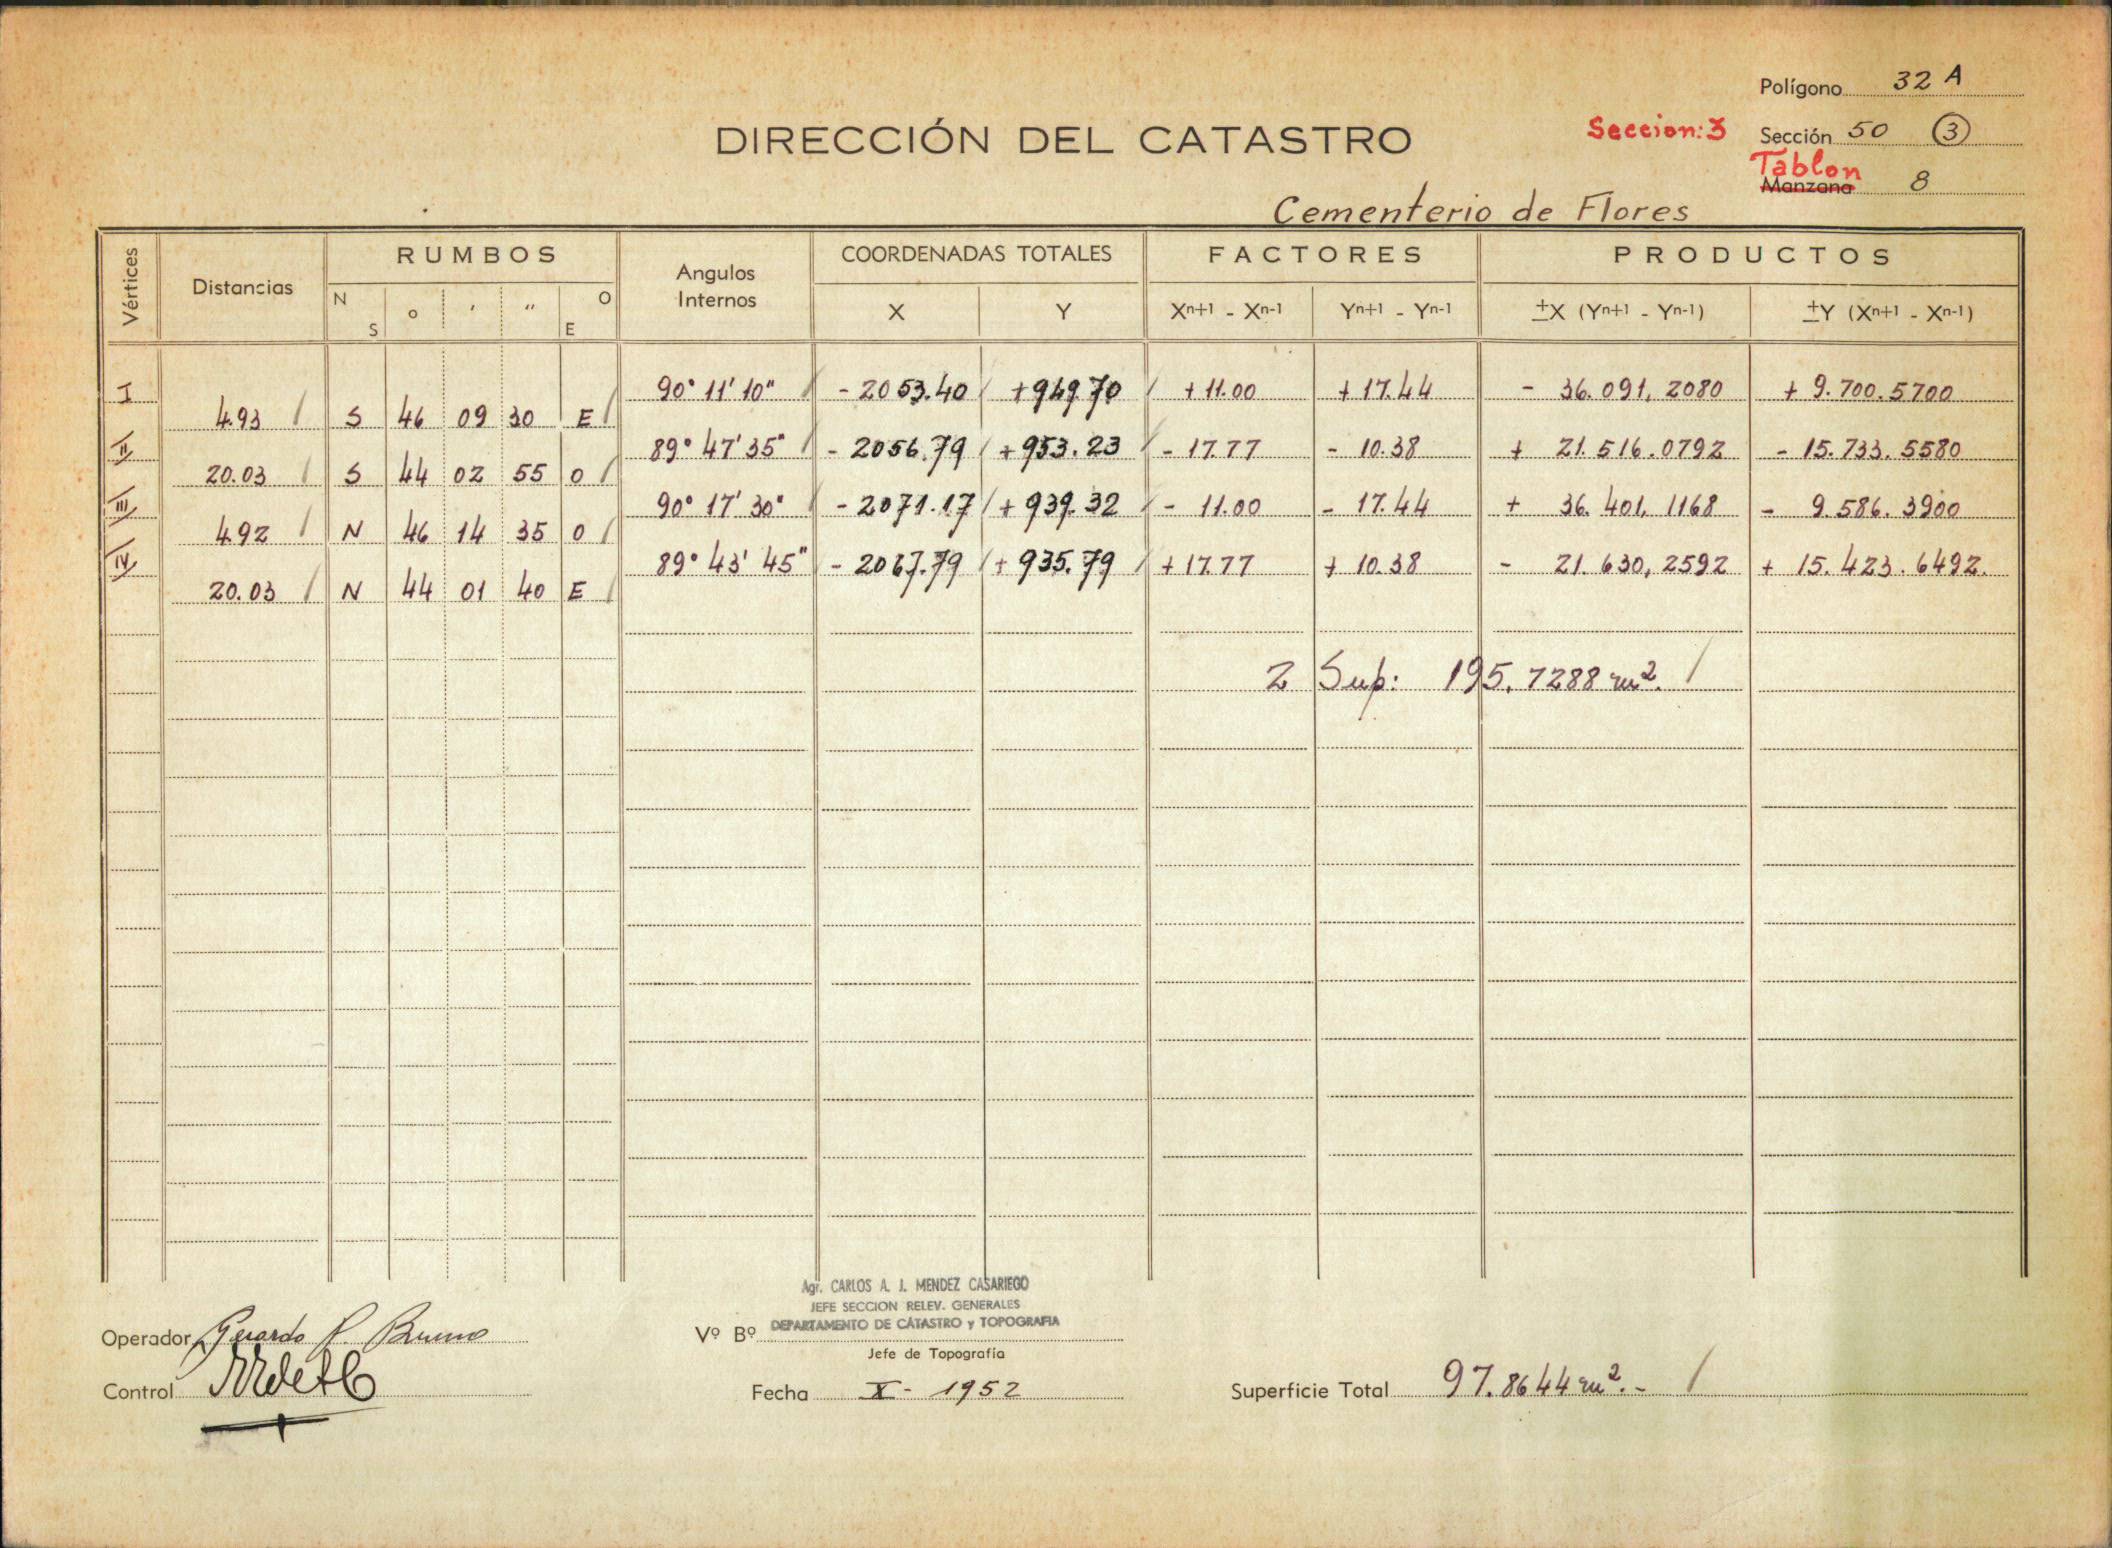 Polígono 32 A
DIRECCIÓN DEL CATASTRO
Seccion: 3
Sección 50 (3)
Tablon
Manzana 8
Cementerio de Flores
Vértices Distancias RUMBOS Angulos Internos COORDENADAS TOTALES FACTORES PRODUCTOS
N S o ' " O E X Y Xn+1 - Xn-1 Yn+1 - Yn-1 ±X (Yn+1 - Yn-1) ±Y (Xn+1 - Xn-1)
I 90° 11' 10" - 2053.40 + 949.70 + 11.00 + 17.44 - 36.091,2080 + 9.700.5700
4.93 S 46 09 30 E
II 89° 47' 35" - 2056.79 + 953.23 - 17.77 - 10.38 + 21.516.0792 - 15.733.5580
20.03 S 44 02 55 O
III 90° 17' 30" - 2071.17 + 939.32 - 11.00 - 17.44 + 36.401,1168 - 9.586.3900
4.92 N 46 14 35 O
IV 89° 43' 45" - 2067.79 + 935.79 + 17.77 + 10.38 - 21.630,2592 + 15.423.6492.
20.03 N 44 01 40 E
2 Sup: 195.7288 m².
Agr. CARLOS A. J. MENDEZ CASARIEGO
JEFE SECCION RELEV. GENERALES
DEPARTAMENTO DE CATASTRO y TOPOGRAFIA
Operador Gerardo R. Bruno
Vº Bº
Jefe de Topografía
Control
Fecha X - 1952
Superficie Total 97.8644 m².-